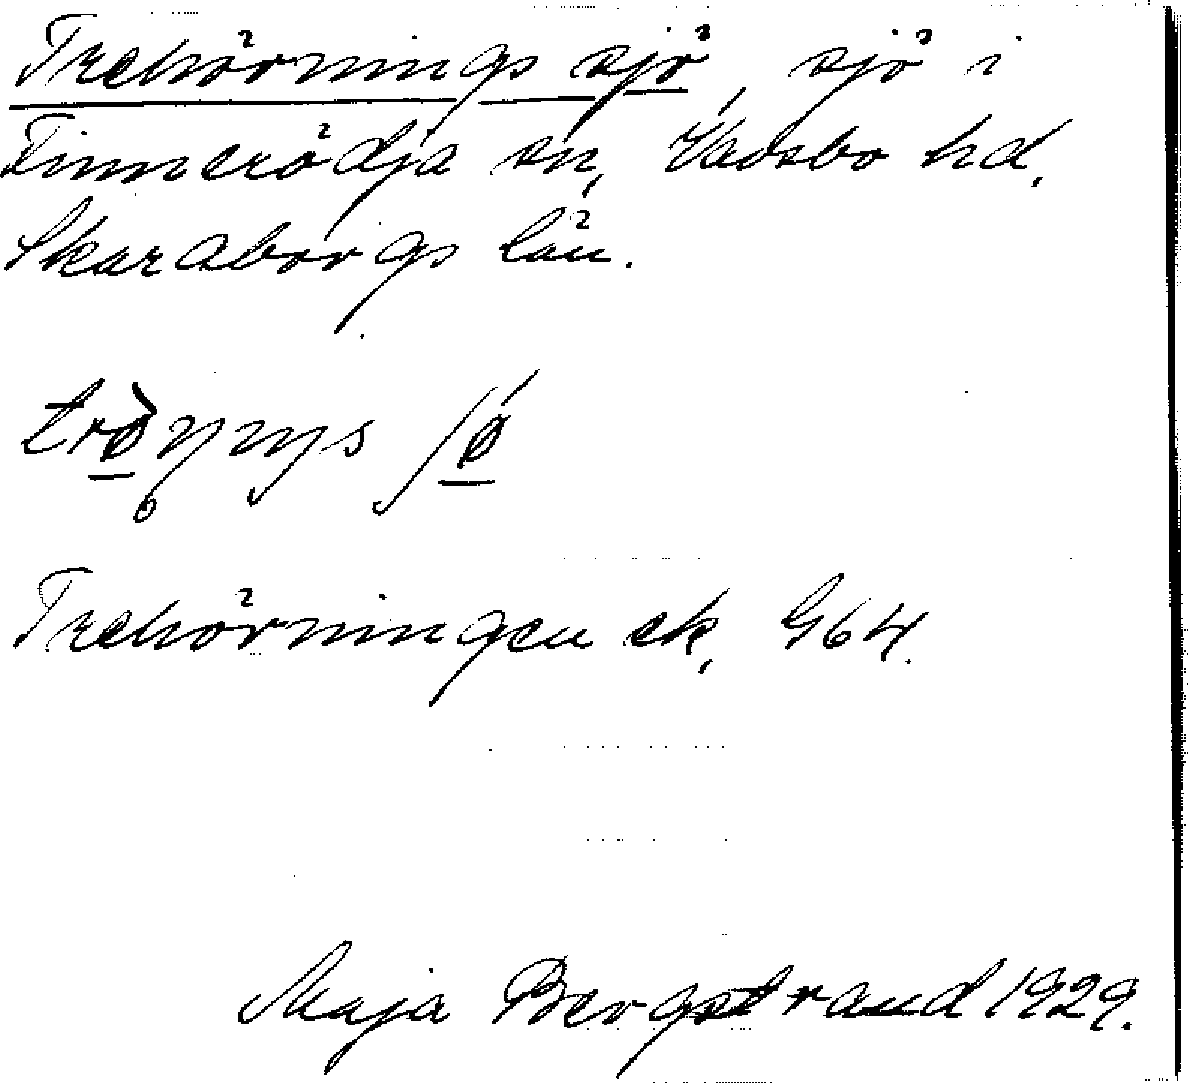 Trehörnings sjö, sjö i
Finnerödja sn, Vadsbo hd,
Skaraborgs län.
Trehörningen ek, G64.
Maja Bergstrand 1929.